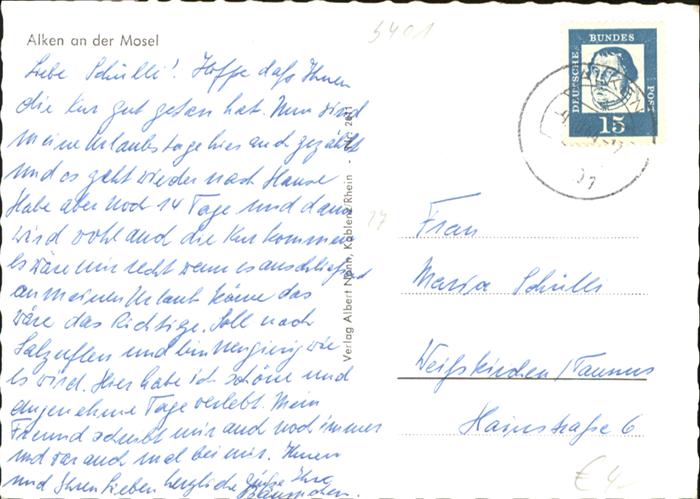 5401
Alken an der Mosel
Liebe Schülli! Hoffe daß Ihnen
die Kur gut getan hat. Nun sind
meine Urlaubstage hier auch gezählt
und es geht wieder nach Hause
Habe aber noch 14 Tage und dann
wird wohl auch die Kur kommen
Es wäre mir recht wenn es anschließend
an meinen Urlaub käme das
wäre das Richtige. Soll nach
Salzuflen und bin neugierig wie
es wird. Hier habe ich schöne und
angenehme Tage verlebt. Mein
Freund schreibt mir auch noch immer
und war auch mal bei mir. Ihnen
und Ihren Lieben herzliche Grüße Ihre
Verlag Albert Nonn, Koblenz/Rhein
17
DEUTSCHE
BUNDES
POST
15
Frau
Maria Schülli
Weißkirchen/Taunus
Hainstraße 6
€ 4,-